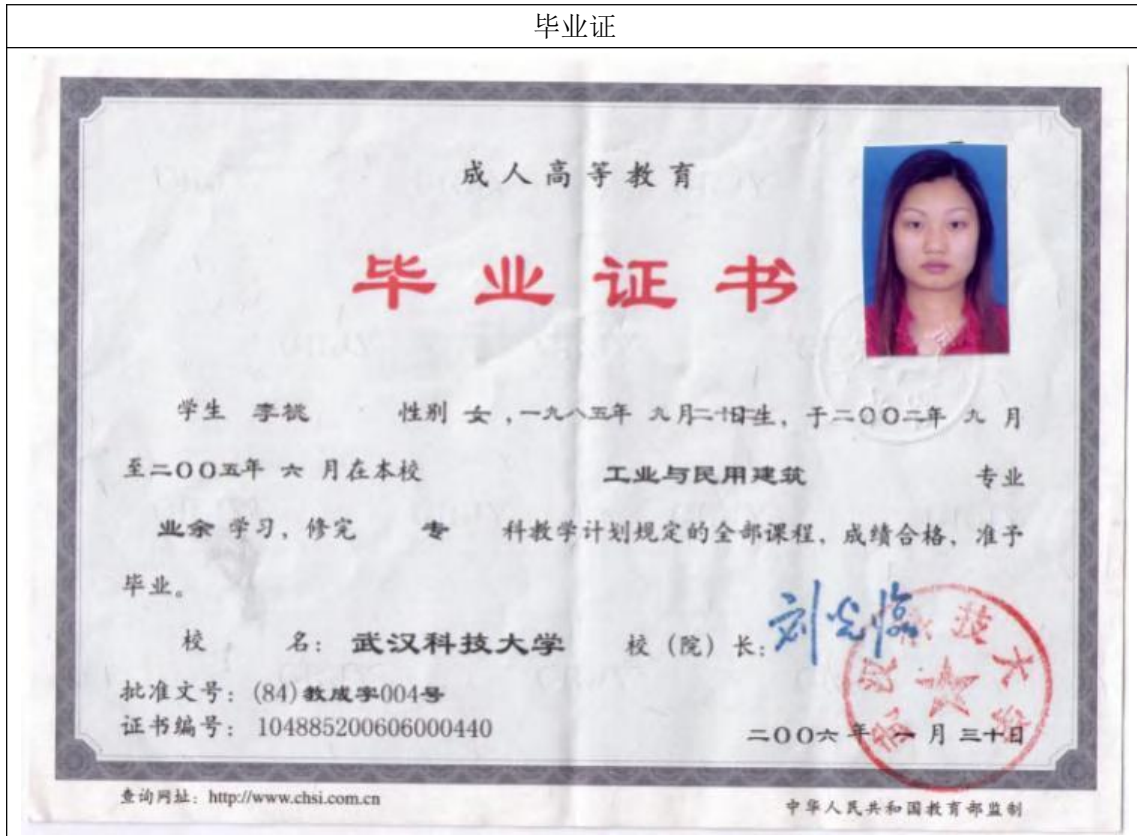 毕业证
成人高等教育
毕业证书
学生 李桃 性别 女,一九八五年 九月二十日生, 于二〇〇二年 九 月
至二〇〇五年 六 月在本校 工业与民用建筑 专业
业余 学习, 修完 专 科教学计划规定的全部课程, 成绩合格, 准予
毕业。
校 名: 武汉科技大学 校(院)长: 刘光临
批准文号: (84)教成字004号
证书编号: 104885200606000440
武汉科技大学
二〇〇六 年 一 月 三十日
查询网址: http://www.chsi.com.cn
中华人民共和国教育部监制